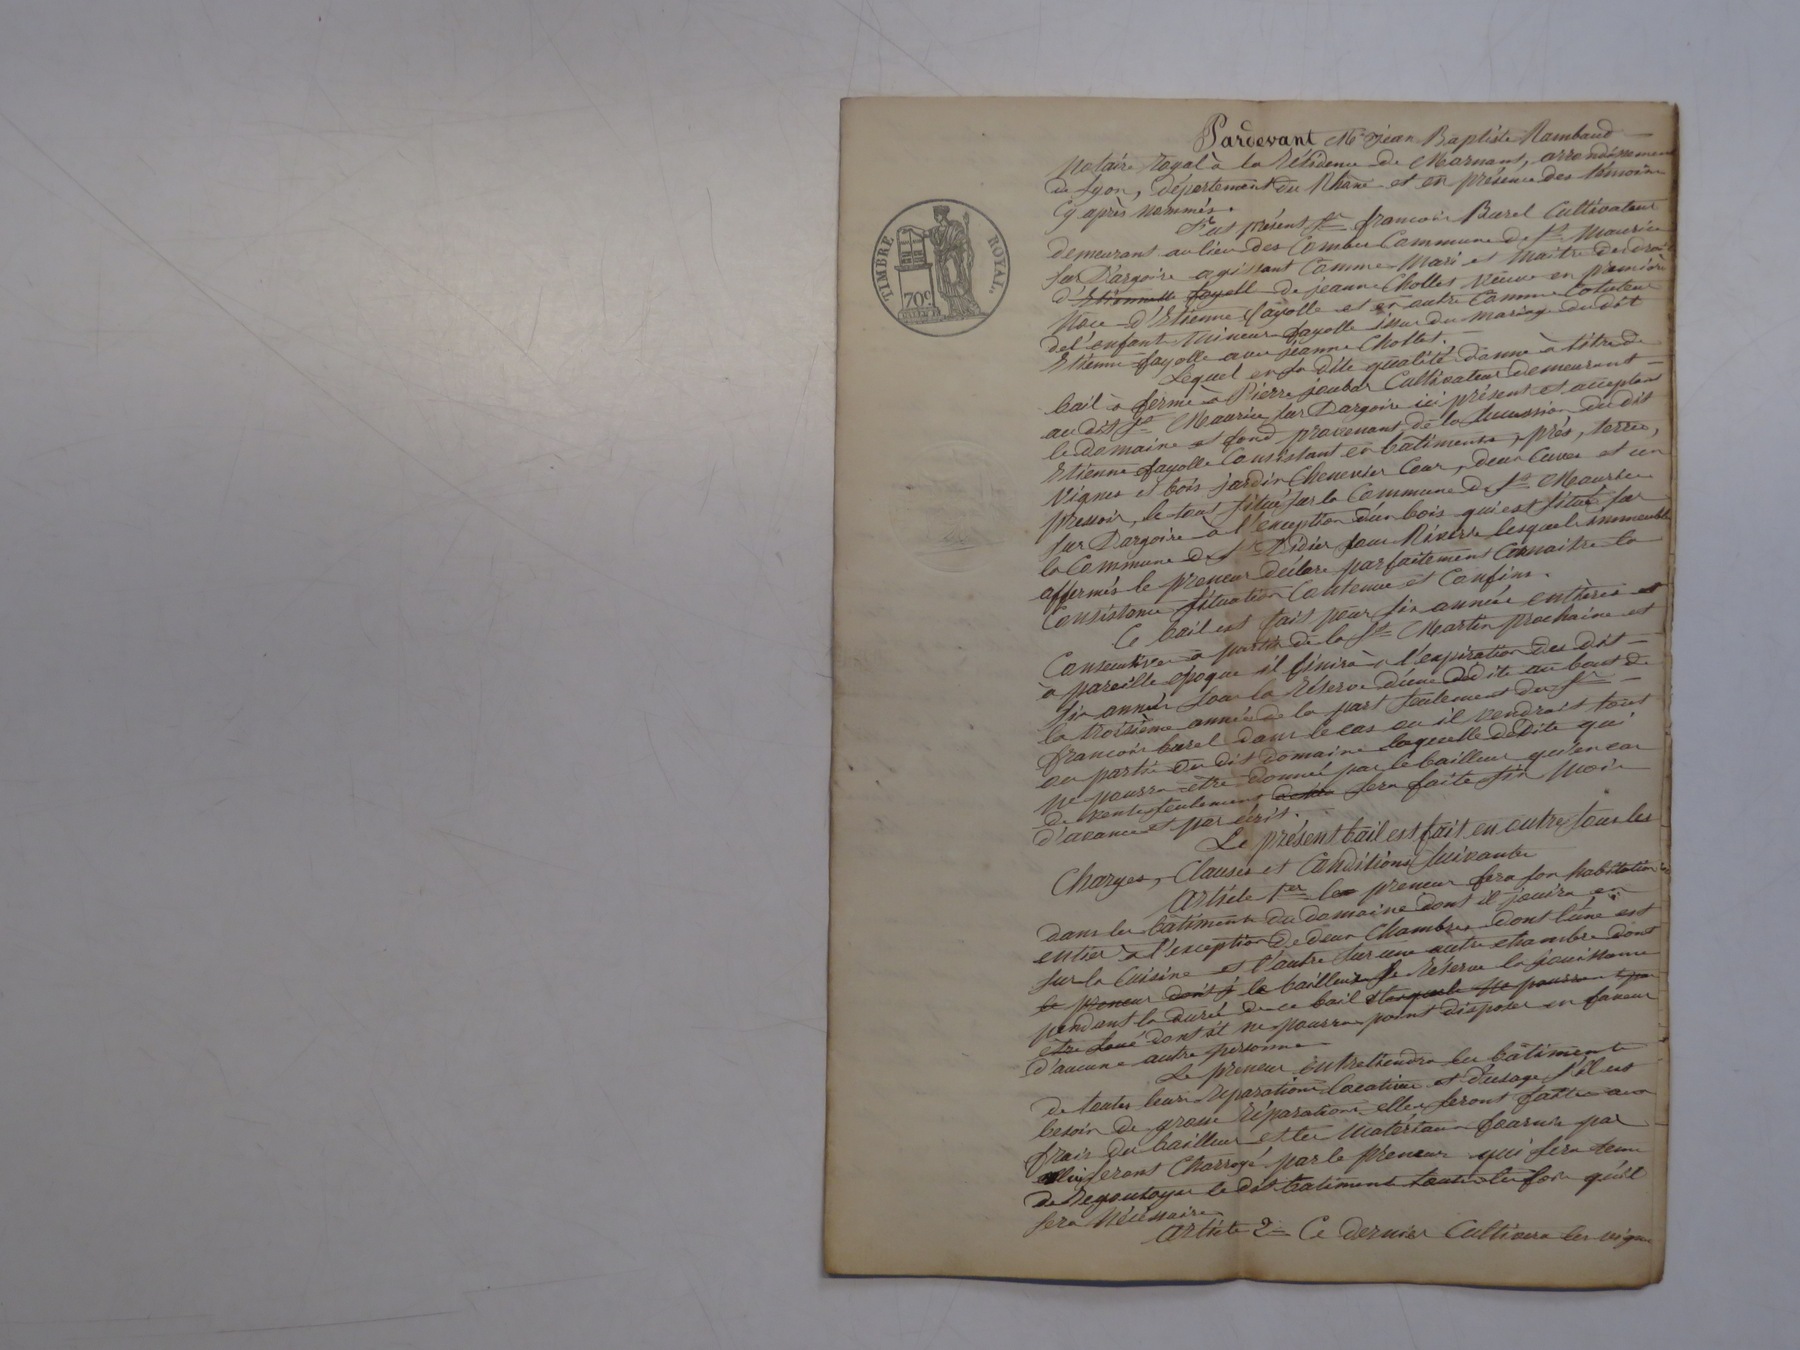 TIMBRE ROYAL
70c
Pardevant Me Jean Baptiste Rambaud
Notaire royal à la Résidence de Mornant, arrondissement
de Lyon, département du Rhône et en présence des témoins
Cy après nommés.
Fut présent Sr francois Burel Cultivateur
demeurant au lieu des Combes Commune de St Maurice
sur Dargoire agissant Comme Mari et Maitre des droits
d'Etiennette fayolle de jeanne Chollet Veuve en premiere
Noce d'Etienne fayolle et en outre Comme Cotuteur
de l'enfant Mineur fayolle issu du mariage du dit
Etienne fayolle avec jeanne Chollet.
Lequel en sa dite qualité donne à titre de
bail à ferme à Pierre joubar Cultivateur demeurant
au dit St Maurice sur Dargoire ici présent et acceptant
le domaine et fond provenant de la Succession du dit
Etienne fayolle Consistant en batiments, prés, terres,
Vignes et bois jardin Chenevier Cour, deux Cuves et un
pressoir, le tout situé sur la Commune de St Maurice
sur Dargoire à l'éxception d'un bois qui est situé sur
la Commune de St Didier sous Riverie lesquels immeubles
affermés le preneur déclare parfaitement Connaitre la
Consistance situation Contenue et Confins.
Ce bail est fait pour six années entières et
Consecutives à partir de la St Martin prochaine et
à pareille époque il finira à l'expiration des dit
six années sous la Réserve d'une dédite au bout de
la troisième année de la part seulement du Sr
francois burel dans le cas ou il vendrait tout
ou partie du dit domaine laquelle dédite qui
ne pourra être donnée par le bailleur qu'en cas
de vente seulement sera faite six Mois
d'avance et par écrit.
Le présent bail est fait en outre sous les
Charges, Clauses et Conditions Suivantes
Article 1er le preneur fera son habitation
dans les bâtiments du domaine dont il jouira en
entier à l'exception de deux Chambres dont l'une est
sur la Cuisine et l'autre sur une autre chambre dont
le preneur dont j le bailleur se réserve la jouissance
pendant la durée de ce bail lesquels ne pourra
être loué dont il ne pourra point disposer en faveur
d'aucune autre personne
Le preneur entretiendra les bâtiments
de toutes leurs réparations locatives et d'usage s'il est
besoin de grosse Réparations elles seront faites aux
frais du bailleur et les Matériaux fournis par
lui seront Charroyé par le preneur qui sera tenu
de Regoutoyer le dit batiment toutes les fois qu'il
sera Nécessaire
Article 2 Ce dernier Cultivera les vignes